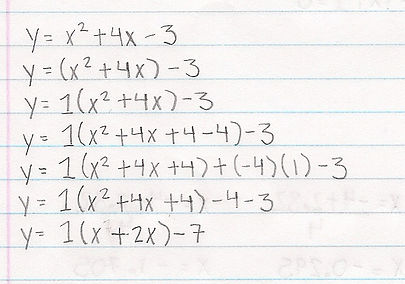 y = x² + 4x - 3
y = (x² + 4x) - 3
y = 1(x² + 4x) - 3
y = 1(x² + 4x + 4 - 4) - 3
y = 1(x² + 4x + 4) + (-4)(1) - 3
y = 1(x² + 4x + 4) - 4 - 3
y = 1(x² + 2x) - 7